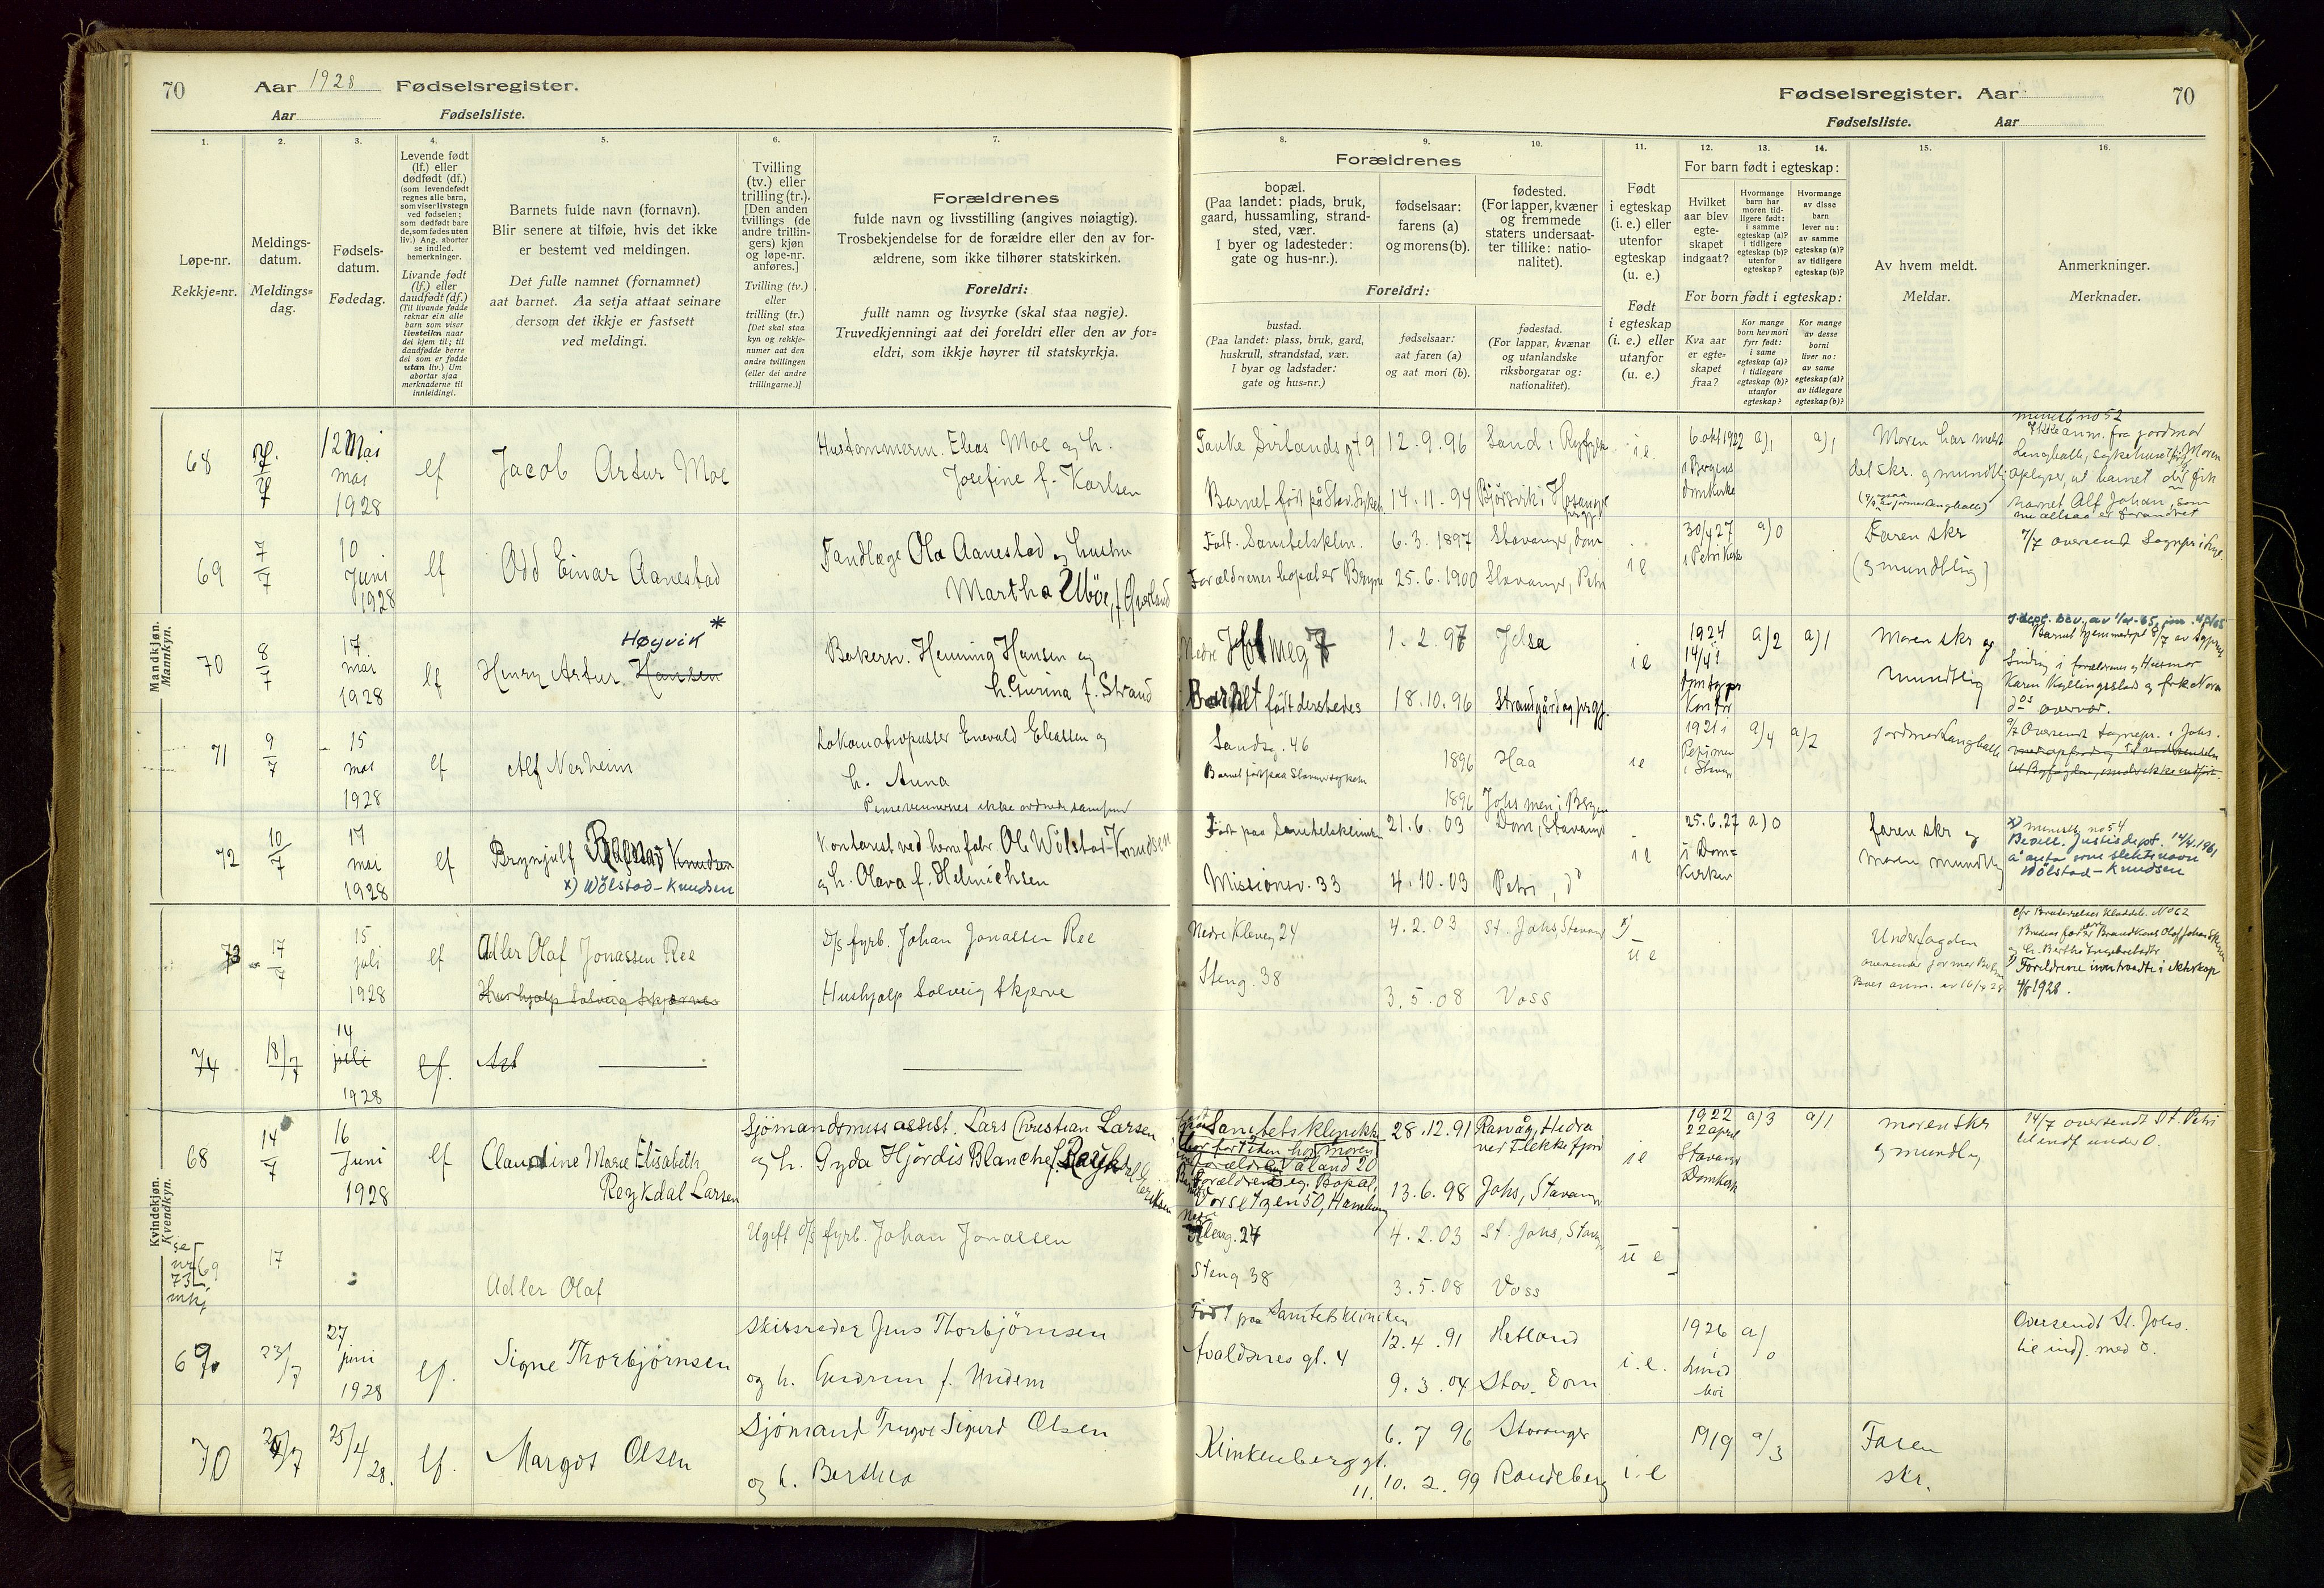 70
Aar 1928 Fødselsregister.
Aar Fødselsliste.
Fødselsregister. Aar
70
Fødselsliste. Aar
1.
2.
3.
4.
5.
6.
7.
8.
9.
10.
11.
12.
13.
14.
15.
16.
Løpe-nr.
Rekkje=nr.
Meldings-
datum.
Meldings=
dag.
Fødsels-
datum.
Fødedag.
Levende født
(lf.) eller
dødfødt (df.)
(som levendefødt
regnes alle barn,
som viser livstegn
ved fødselen;
som dødfødt bare
de, som fødes uten
liv.) Ang. aborter
se indled.
bemerkninger.
Livande født
(lf.) eller
daudfødt (df.)
(Til livande fødde
reknar ein alle
born som viser
livsteikn naar
dei kjem til; til
daudfødde berre
dei som er fødde
utan liv.) Um
abortar sjaa
merknaderne til
innleidingi.
Barnets fulde navn (fornavn).
Blir senere at tilføie, hvis det ikke
er bestemt ved meldingen.
Det fulle namnet (fornamnet)
aat barnet. Aa setja attaat seinare
dersom det ikkje er fastsett
ved meldingi.
Tvilling
(tv.) eller
trilling (tr.).
[Den anden
tvillings (de
andre trillin-
gers) kjøn
og løpe-nr.
anføres.]
Tvilling (tv.)
eller
trilling (tr.)
[Det skal staa
kyn og rekkje-
numer aat den
andre tvillingen
(eller dei andre
trillingarne.)]
Forældrenes
fulde navn og livsstilling (angives nøiagtig).
Trosbekjendelse for de forældre eller den av for-
ældrene, som ikke tilhører statskirken.
Foreldri:
fullt namn og livsyrke (skal staa nøgje).
Truvedkjenningi aat dei foreldri eller den av for=
eldri, som ikkje høyrer til statskyrkja.
Forældrenes
bopæl.
(Paa landet: plads, bruk,
gaard, hussamling, strand-
sted, vær.
I byer og ladesteder:
gate og hus-nr.).
fødselsaar:
farens (a)
og morens (b).
fødested.
(For lapper, kvæner
og fremmede
staters undersaat-
ter tillike: natio-
nalitet).
Foreldri:
bustad.
(Paa landet: plass, bruk, gard,
huskrull, strandstad, vær.
I byar og ladstader:
gate og hus=nr.)
fødselsaar:
aat faren (a)
og aat mori (b).
fødestad.
(For lappar, kvænar
og utanlandske
riksborgarar og:
nationalitet).
Født
i egteskap
(i. e.) eller
utenfor
egteskap
(u. e.)
Født
i egteskap
(i. e.) eller
utanfor
(u. e.)
For barn født i egteskap:
Hvilket
aar blev
egte-
skapet
indgaat?
Hvormange
barn har
moren tid-
ligere født:
i samme
egteskap (a)?
i tidligere
egteskap (b)?
utenfor
egteskap?
Hvormange
av disse
barn
lever nu:
av samme
egteskap (a)?
av tidligere
egteskap (b)?
For born født i egteskap:
Kva aar
er egte=
skapet
fraa?
Kor mange
born hev mori
fyrr født:
i same
egteskap (a)?
i tidlegare
egteskap (b)?
utanfor
egteskap?
Kor mange
av desse
borni
liver no:
av same
egteskap (a)?
av tidlegare
egteskap (b)?
Av hvem meldt.
Meldar.
Anmerkninger.
Merknader.
Mandkjøn.
Mannkyn.
68
7
12 Mai
mai
1928
lf
Jacob Artur Moe
Hustømmerm. Elias Moe og h.
Josefine f. Karlsen
Tauke Sirlandsgt 9
Barnet født på Stav. Sykeh.
12.9.96
14.11.94
Sand i Ryfylke
i e.
6 okt 1922
i Bergens
Domkirke
a)1
a)1
Moren har meldt
det skr. og mundtlig
no 52
anm. fra jordmor
Langballe, sykehuset. Moren
oplyser, at barnet der fik
navnet Alf Johan, som
nu altsaa er forandret
69
7/7
10
Juni
1928
lf
Odd Einar Aanestad
Tandlæge Ola Aanestad og hustru
Martha Uböe, f.
Født. Sanitetsklin.
Forældrenes bopæl er Bryne
6.3.1897
25.6.1900
Stavanger, Dom
Stavanger, Petri
i e
30/4 27
i Petri Kirke
a)0
Faren skr
(og mundtlig)
7/7 oversend Sognpr i
70
8/7
17.
mai
1928
lf
Høyvik *
Henry Artur Hansen
Bakersv. Henning Hansen og
h. Gurina f. Strand
Nedre Holmeg 7
Barnet født dersteds
1.2.97
18.10.96
Jelsa
Strandgård og prgj.
i e
1924
14/4 i
Domsogns
Kontor
a)2
a)1
Moren skr og
mundtlig
Barnet hjemmedøpt 8/7 av sognepr
Sinding i forældrenes og Husmor
Karen Kyllingsstad og frk Nora
dos overvær.
71
9/7
15
mai
1928
lf
Alf Nerheim
Lokomotivpusser Enevald Eliassen og
h. Anna
Pinsevennernes ikke ordnede samfund
Sandsg. 46
Barnet født paa Stavanger sykehus
1896
1896
Haa
Johs men i Bergen
i e
1921 i
Petri men
i Stavgr
a)4
a)2
jordmor Langballe
9/7 Oversendt Sognepr. i Johs.
72
10/7
17
mai
1928
lf
Brynjulf Knudsen
x) Wölstad-Knudsen
Kontorist ved hermfabr. Ole Wölstad-Knudsen
og h. Olava f. Helmichsen
Født paa Sanitetsklinikk
Missionsv. 33
21.6.03
4.10.03
Dom, Stavang
Petri, do
i e
25.6.27
i Dom=
kirken
a)0
faren skr og
moren mundtlig
no 54
x) Bevill. Justisdepot. 14/4.1961
å anta som slektsnavn
Wölstad-Knudsen
73
17/7
15
juli
1928
lf
Adler Olaf Jonassen Ree
Hushjelp Solveig Skjerve
D/S fyrb. Johan Jonassen Ree
Hushjelp Solveig Skjerve
Nedre Kleveg 24
Steng. 38
4.2.03
3.5.08
St. Johs, Stavang
Voss
x)
u e
Underfogden
oversender jormor
Boes anm. av 16/7 28
cfr Brudevielses Kladdeb. No 62
Brudens far er Brandkonst Olaf Johan Skjerve
og h. Berthe Ingebretsdtr
x) Foreldrene inntraadte i ekteskap
4/8 1928.
74
18/7
14
juli
1928
lf.
Kvindekjøn.
Kvendkyn.
68
14/7
16
Juni
1928
lf
Claudine Marie Elisabeth
Reykdal Larsen
Sjömandsmissassist. Lars Christian Larsen
og h. Gyda Hjördis Blanche f. Reykdal Eriksen
Sanitetsklinikk
bor for tiden hos moren
forældre Våland 20
Forældrenes eg. Bopæl
Vorsetzen 50, Hamburg
28.12.91
13.6.98
Rasvåg, Hidra
ved Flekkefjord
Johs, Stavanger
i e
1922
22 april
Stavangr
Domkirk
a)3
a)1
moren skr
og mundtlig
14/7 oversendt St. Petri
til indf under 0.
se
nr
73
mkj
69
17
Adler Olaf
Ugift D/S fyrb. Johan Jonassen
Nedre
Kleveg. 24
Steng 38
4.2.03
3.5.08
St. Johs, Stavgr
Voss
u e
69
23/7
27
juni
1928
lf.
Signe Thorbjörnsen
Skibsreder Jens Thorbjörnsen
og h. Gudrun f. Undem
Født paa Sanitetskliniken
Avaldsnes gt. 4
12.4.91
9.3.04
Hetland
Stav. Dom
i.e.
1926
i
a)
0
Oversendt St. Johs.
til indf. med 0.
70
25/4
28.
lf.
Margot Olsen
Sjömand Trygve Sigurd Olsen
og h. Berthea
Klinkenberg gt.
11.
6.7 96
10.2.99
Stavanger
Randeberg
i.e
1919
a)3
Faren
skr.